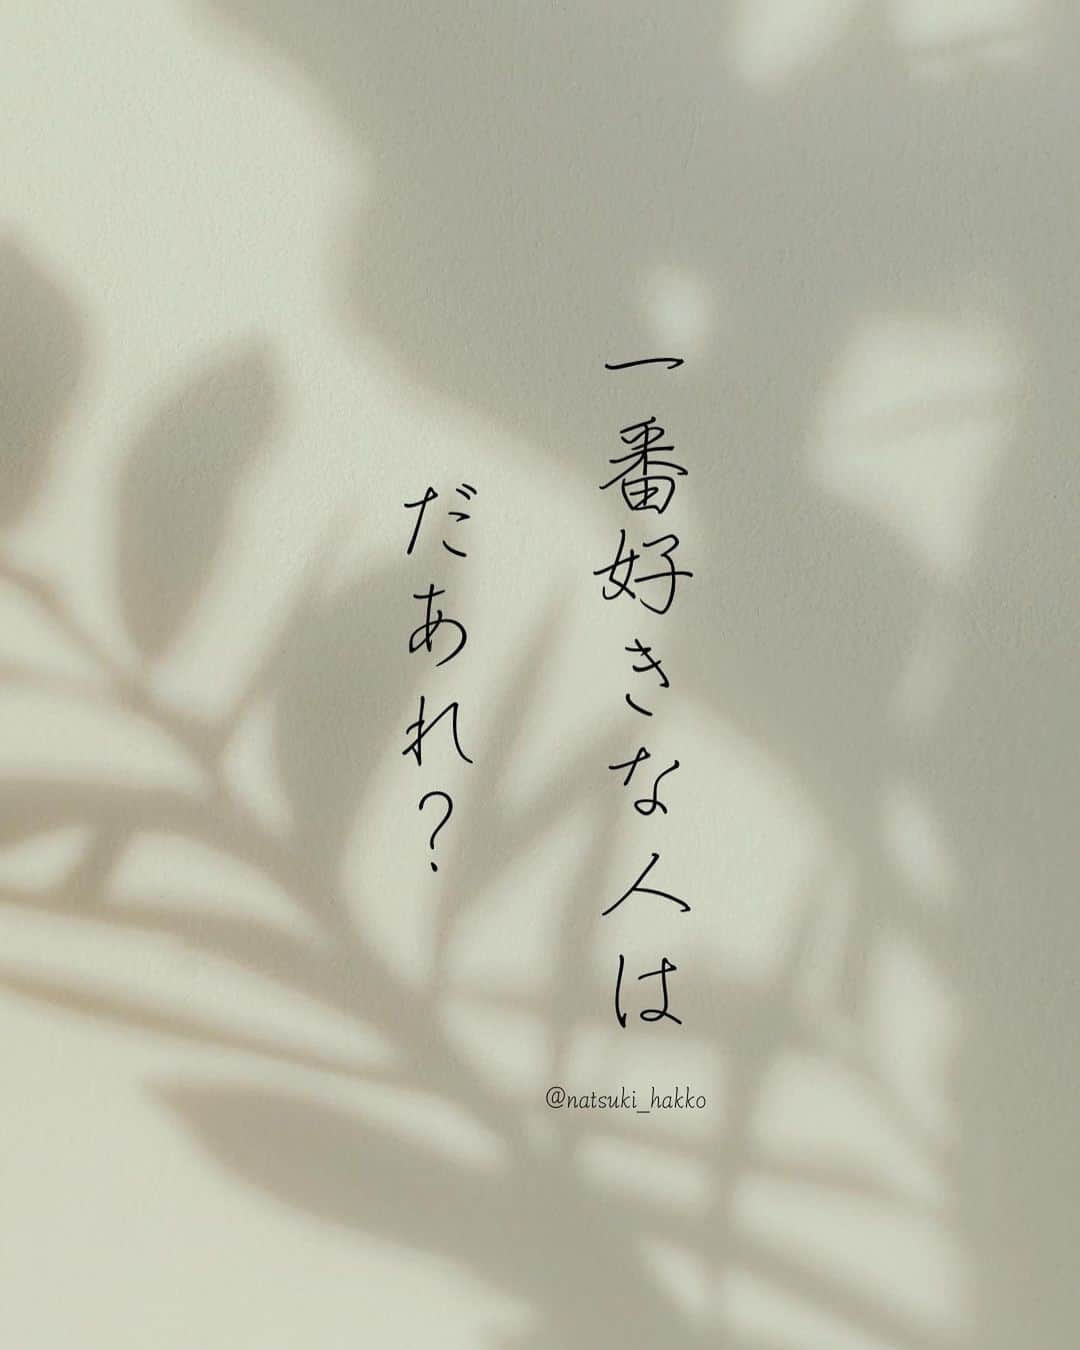 一番好きな人は
だあれ？
@natsuki_hakko